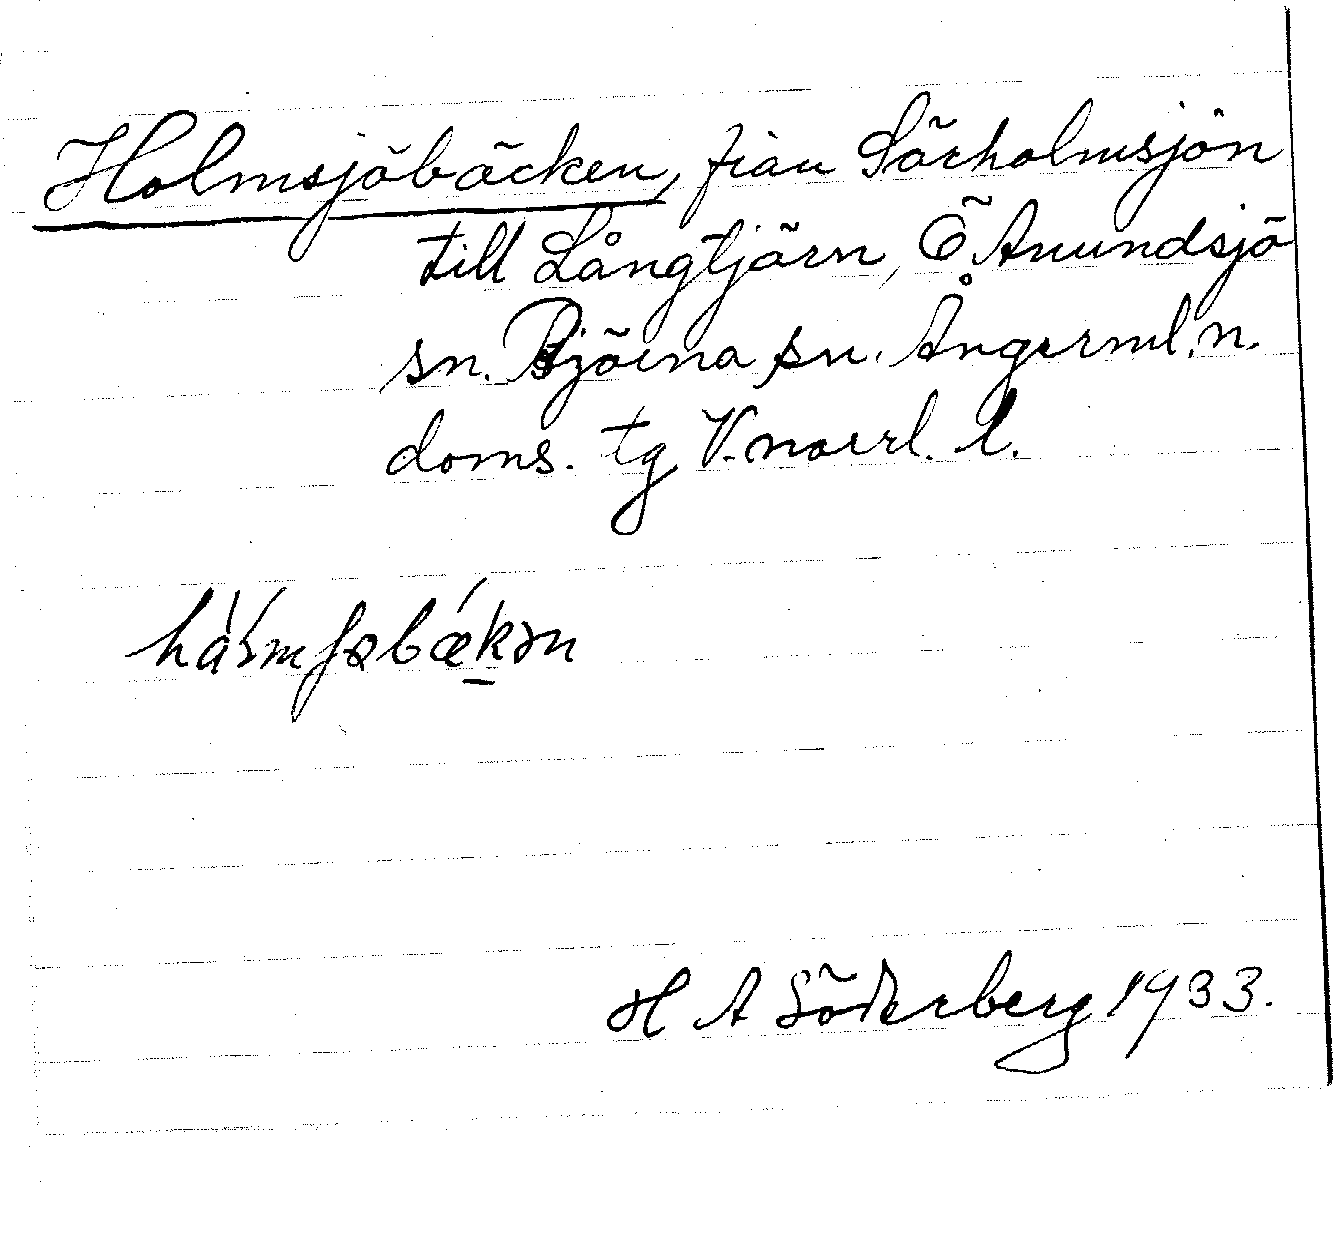 Holmsjöbäcken, från Sörholmsjön
till Långtjärn, Ö Anundsjö
sn. Björna sn. Ångerml. n.
doms. tg V. norrl. l.
H A Söderberg 1933.